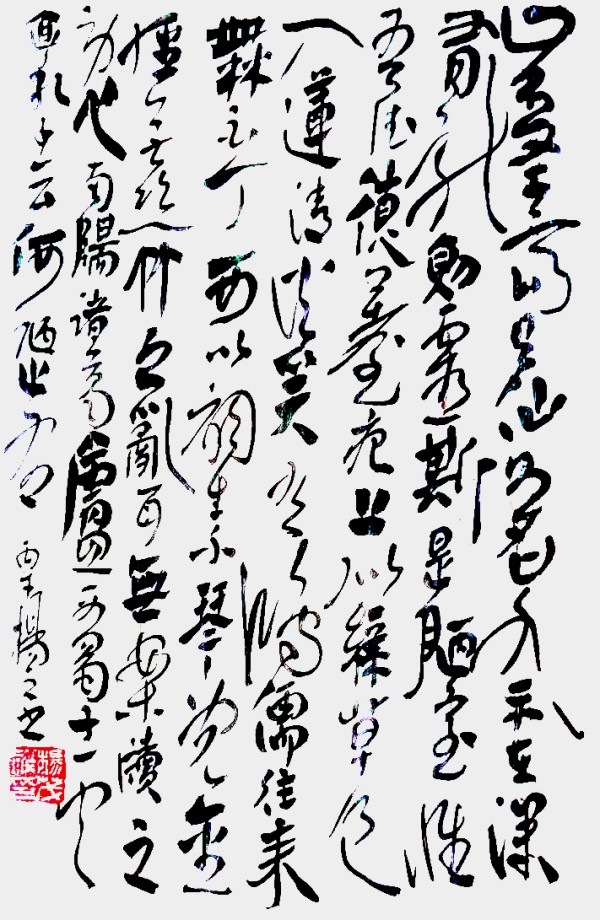 山不在高有仙則名水不在深
有龍則靈斯是陋室惟
吾德馨苔痕上綠草色
入蓮清談笑有鴻儒往來
無白丁可以調素琴閱金
經無絲竹之亂耳無案牘之
勞形南陽諸葛廬西蜀子雲
亭孔子云何陋之有